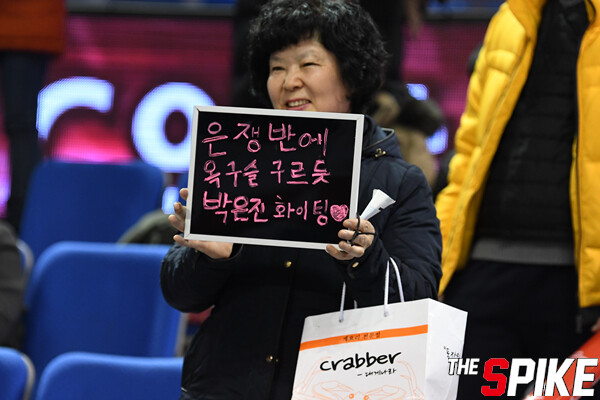 CO
은쟁반에
옥구슬 구르듯
박은진 화이팅
crabber
- 대게나라
THE SPIKE